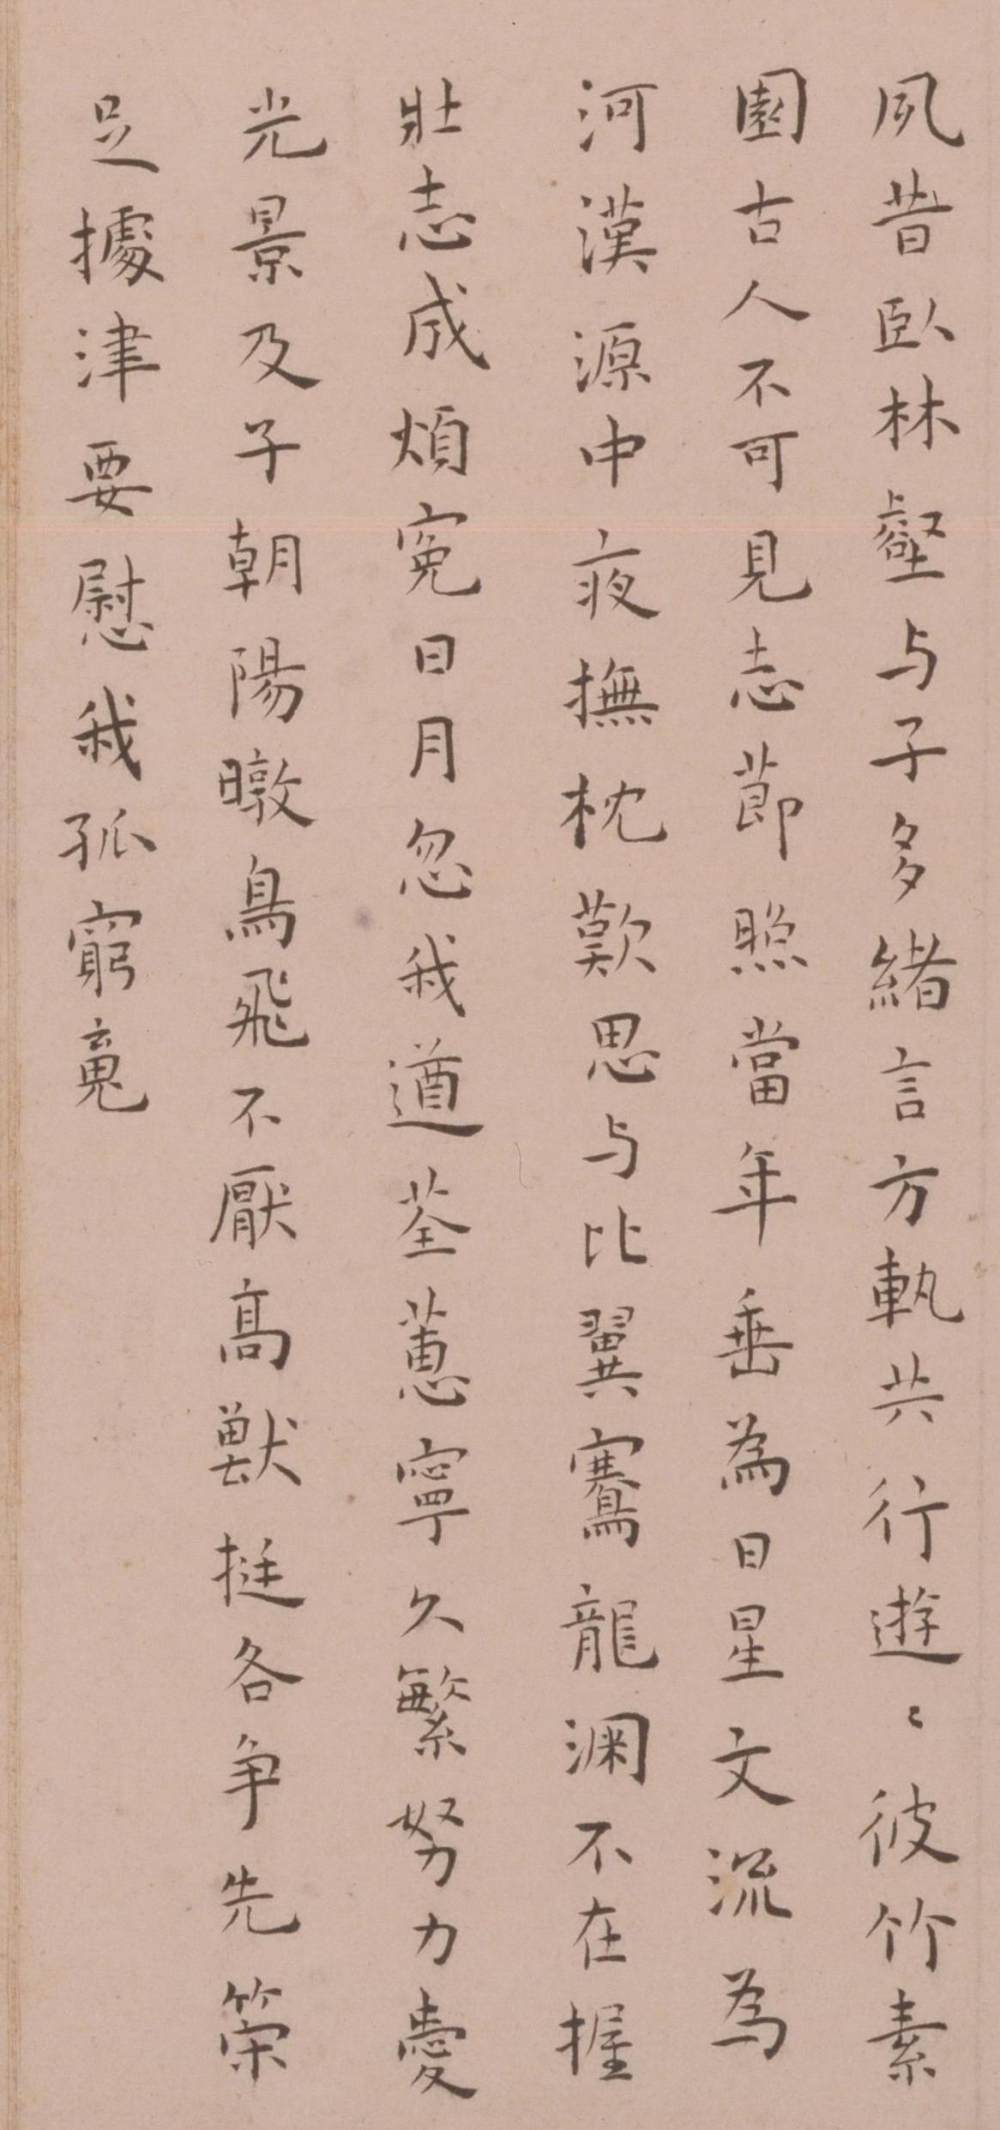 夙昔臥林壑与子多緒言方軌共行遊〻彼竹素
園古人不可見志節照當年垂為日星文流為
河漢源中夜撫枕歎思与比翼騫龍淵不在握
壯志成煩冤日月忽我遒荃蕙寧久繁努力愛
光景及子朝陽暾鳥飛不厭高獸挺各爭先策
足據津要慰我孤窮魂